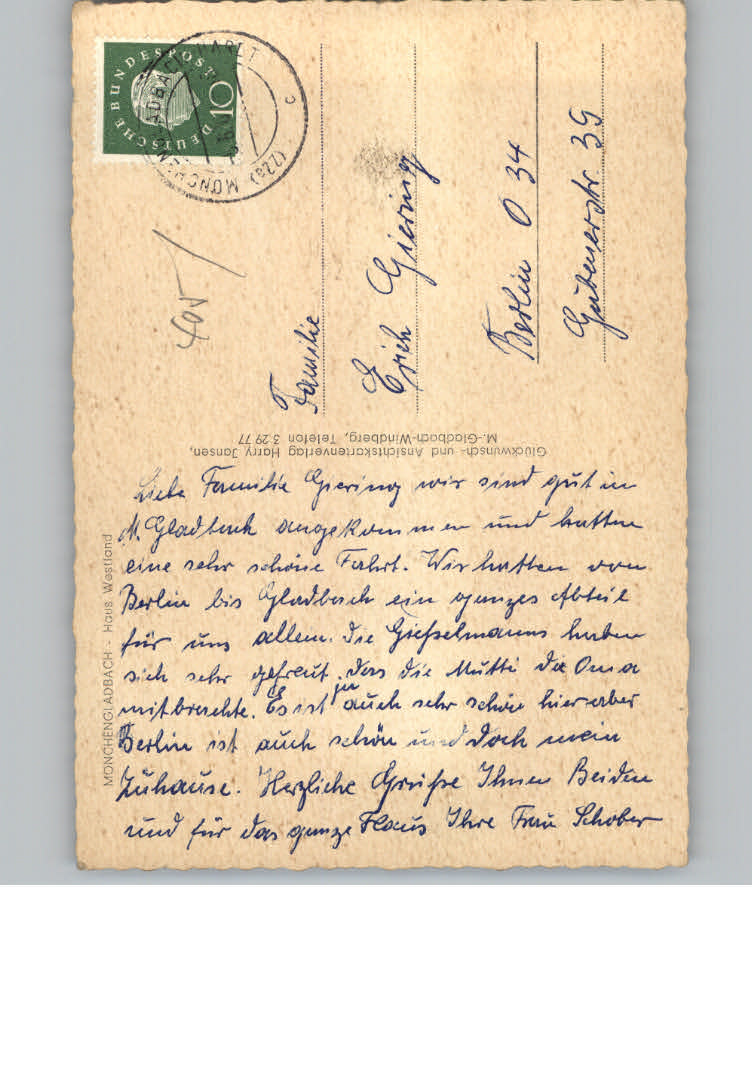 DEUTSCHE BUNDESPOST
10
(22a) MÖNCHENGLADBACH
c
405
Familie
Erich Giering
Berlin O 34
Gubenerstr. 39
Glückwunsch- und Ansichtskartenverlag Harry Jansen,
M.-Gladbach-Windberg, Telefon 3 29 77
MÖNCHENGLADBACH - Haus Westland
Liebe Familie Giering wir sind gut in
M. Gladbach angekommen und hatten
eine sehr schöne Fahrt. Wir hatten von
Berlin bis Gladbach ein ganzes Abteil
für uns allein. Die Gießelmanns haben
sich sehr gefreut, das die Mutti die Oma
mitbrachte. Es ist ja auch sehr schön hier aber
Berlin ist auch schön und doch mein
Zuhause. Herzliche Grüße Ihnen Beiden
und für das ganze Haus Ihre Frau Schober